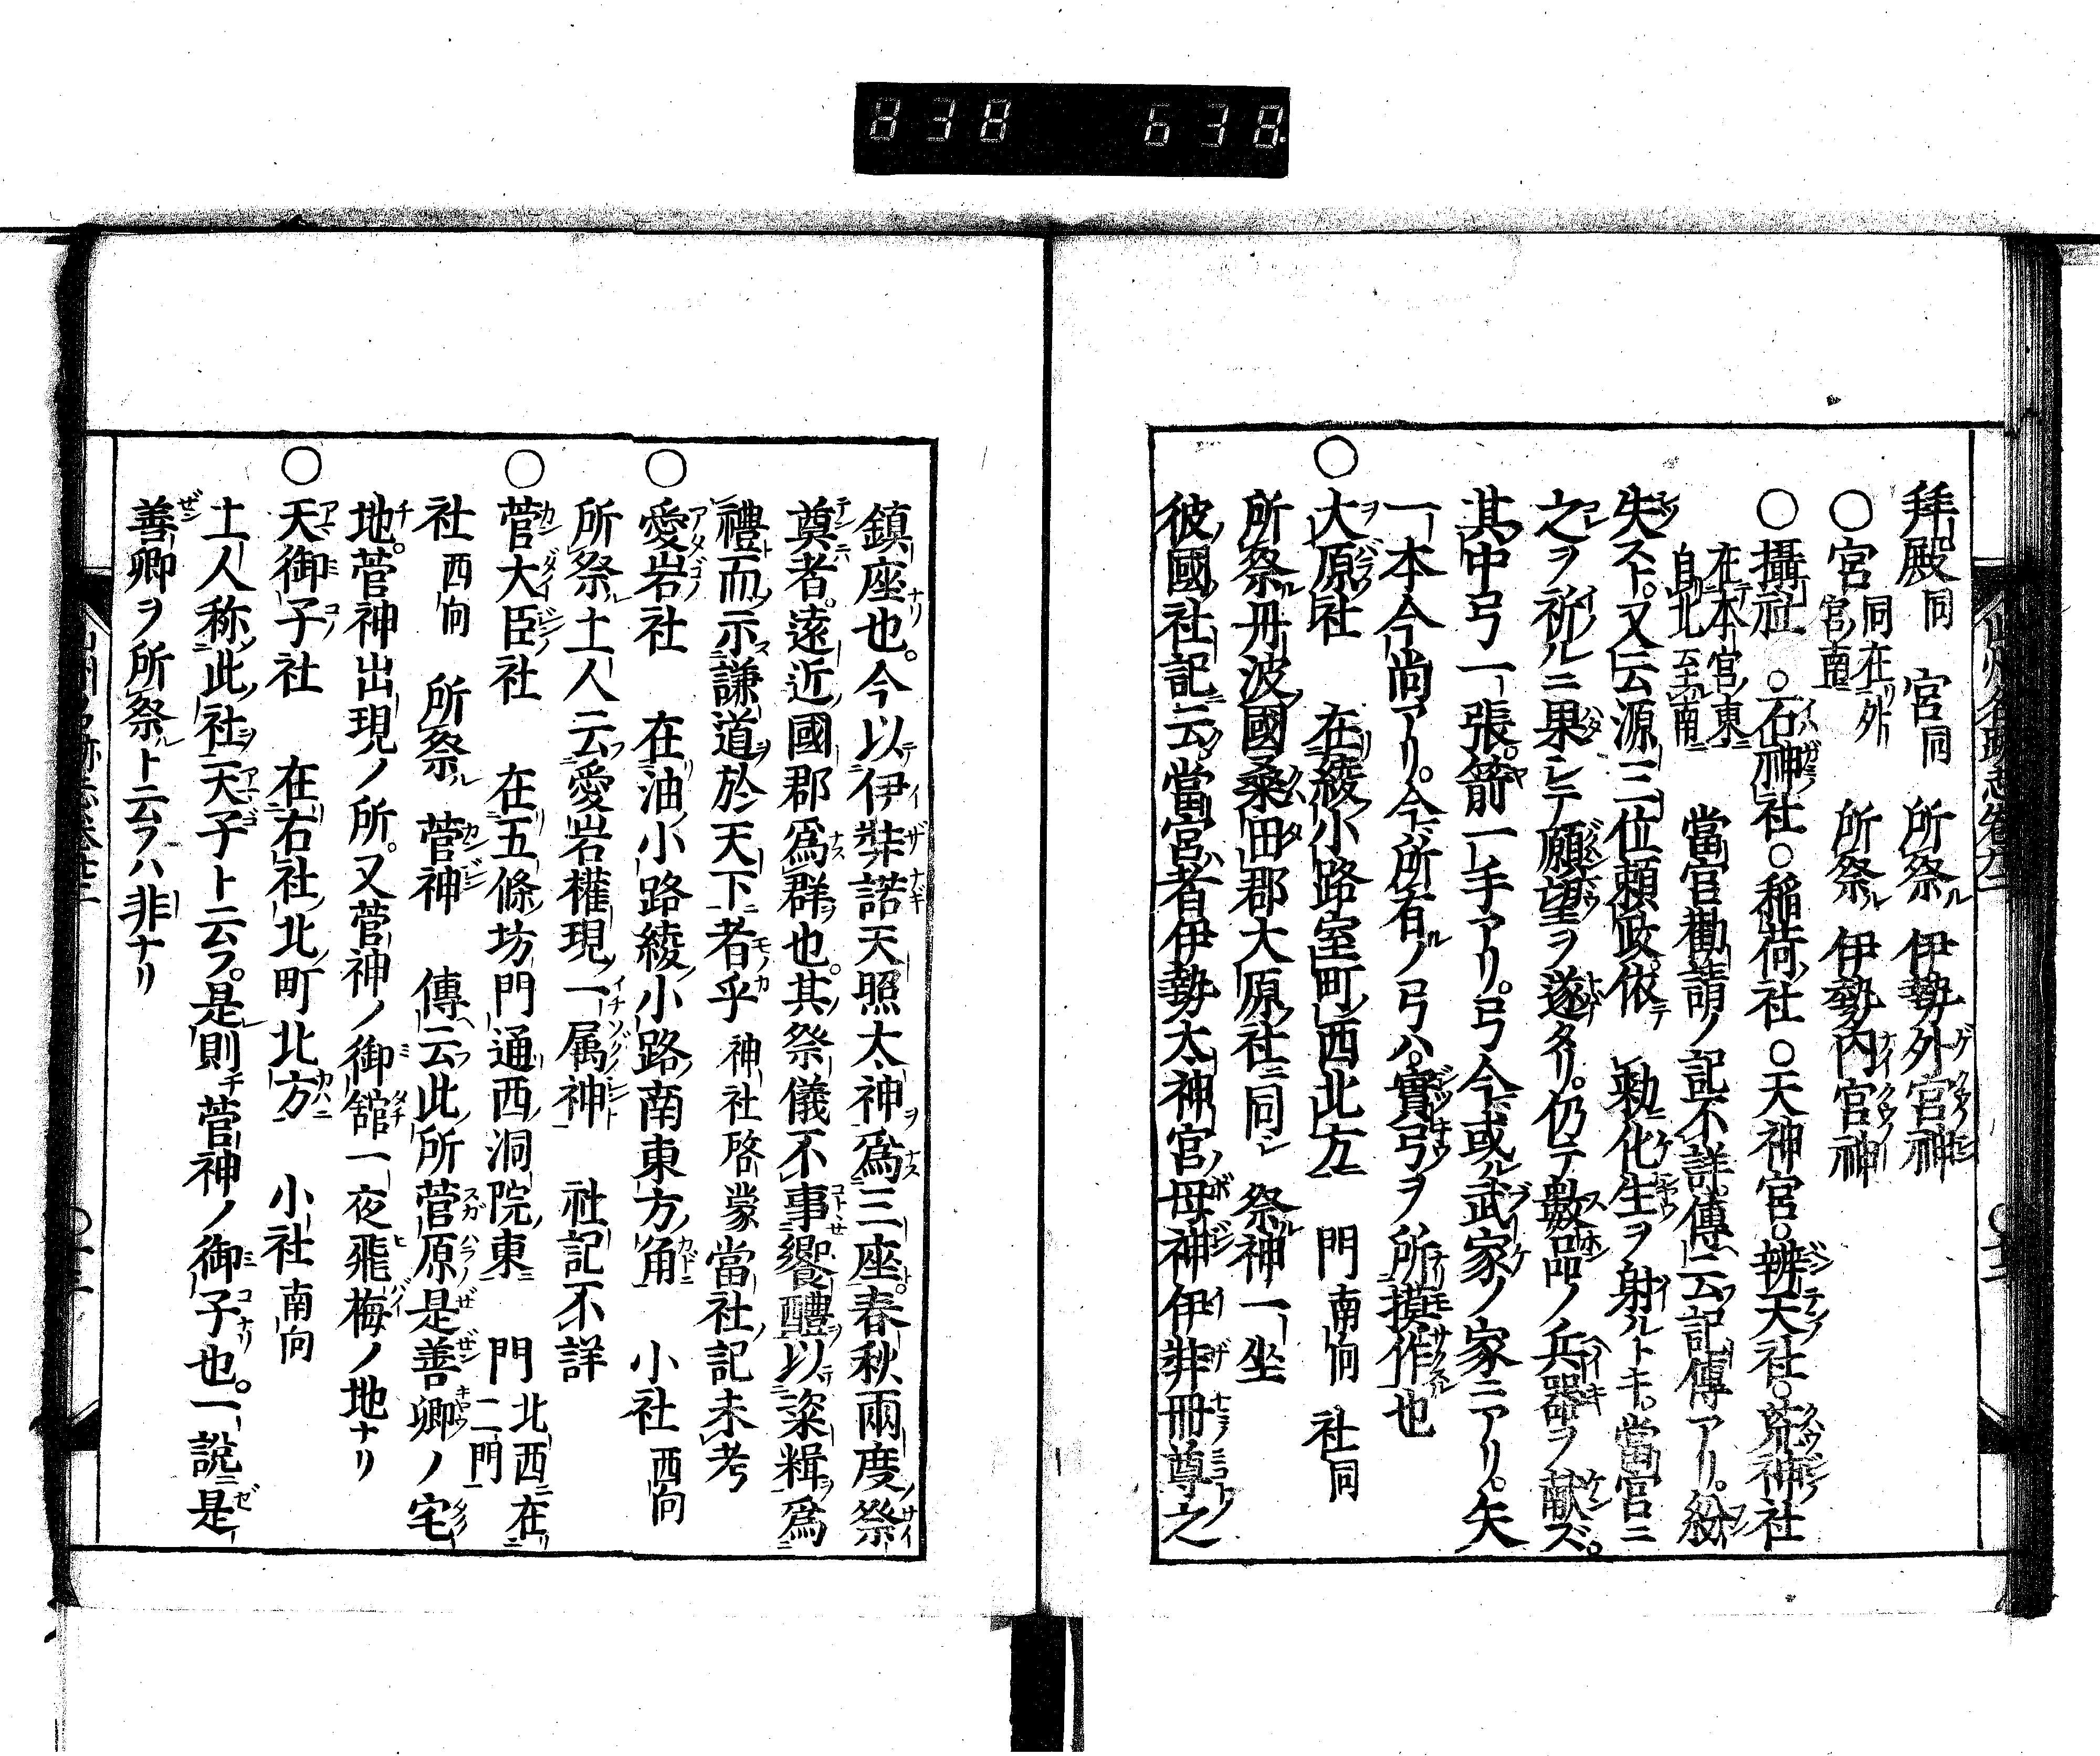 838 638
拜殿同 宮同 所祭ル 伊勢外宮神
○宮 同在外宮南 所祭ル 伊勢内宮神
○攝社 ○石神社○稲荷社○天神宮○辨天社○荒神社
在本宮東自北至南 當宮勸請ノ記不詳傳云記傳アリ。紛
失スト。又云源三位頼政。依テ 勅ニ化生ヲ射ルトキ。當宮ニ
之ヲ祈ルニ果シテ願望ヲ遂タリ。仍テ數品ノ兵器ヲ献ズ。
其中弓一張。箭一手アリ。弓今或ル武家ノ家ニアリ。矢
一本今尚アリ。今所有ルノ弓ハ。實弓ヲ所摸作也
○大原社 在綾小路室町西北方 門南向 社同
所祭ル丹波國桑田郡大原社ニ同シ 祭ル神一坐
彼國社記云。當宮者伊勢太神宮ノ母神伊弉冊尊之
鎮座也。今以伊弉諾天照太神爲三座。春秋兩度ノ祭
奠者。遠近國郡爲群也。其祭儀不事饗醴以粢糈爲
禮而示謙道於天下者乎 神社啓蒙 當社ノ記未考
○愛岩社 在油小路綾小路南東方角 小社 西向
所祭土人云愛岩權現ノ一属神 社記不詳
○菅大臣社 在五條坊門通西洞院東 門 北西ニ在二門
社 西向 所祭ル 菅神 傳云此所菅原是善卿ノ宅
地。菅神出現ノ所。又菅神ノ御舘一夜飛梅ノ地ナリ
○天御子社 在右社北町北方 小社 南向
土人称此社天子ト云フ。是則チ菅神ノ御子也。一説ニ是
善卿ヲ所祭ルト云フハ非ナリ